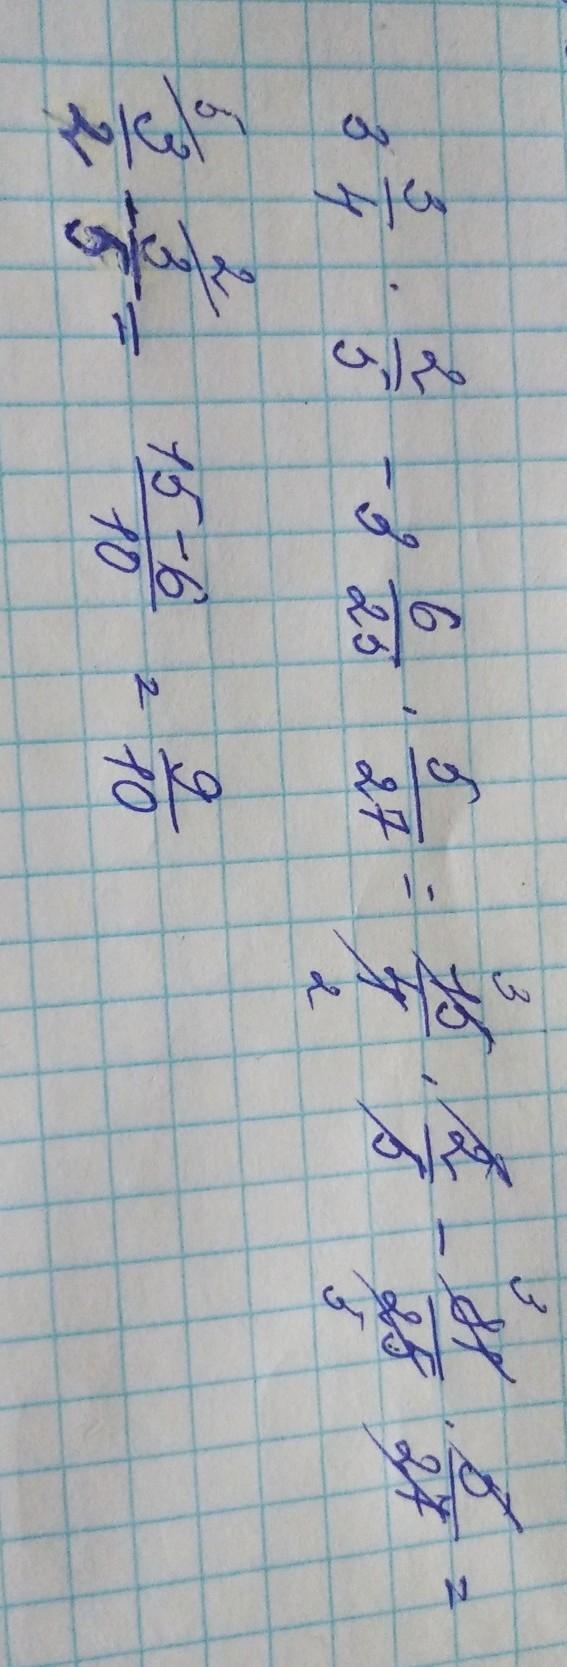 3 3/4 · 2/5 - 3 6/25 · 5/27 = 15/4 3 2 · 2/5 - 81/25 3 5 · 5/27 =
3/2 5 - 3/5 2 = 15-6/10 = 9/10